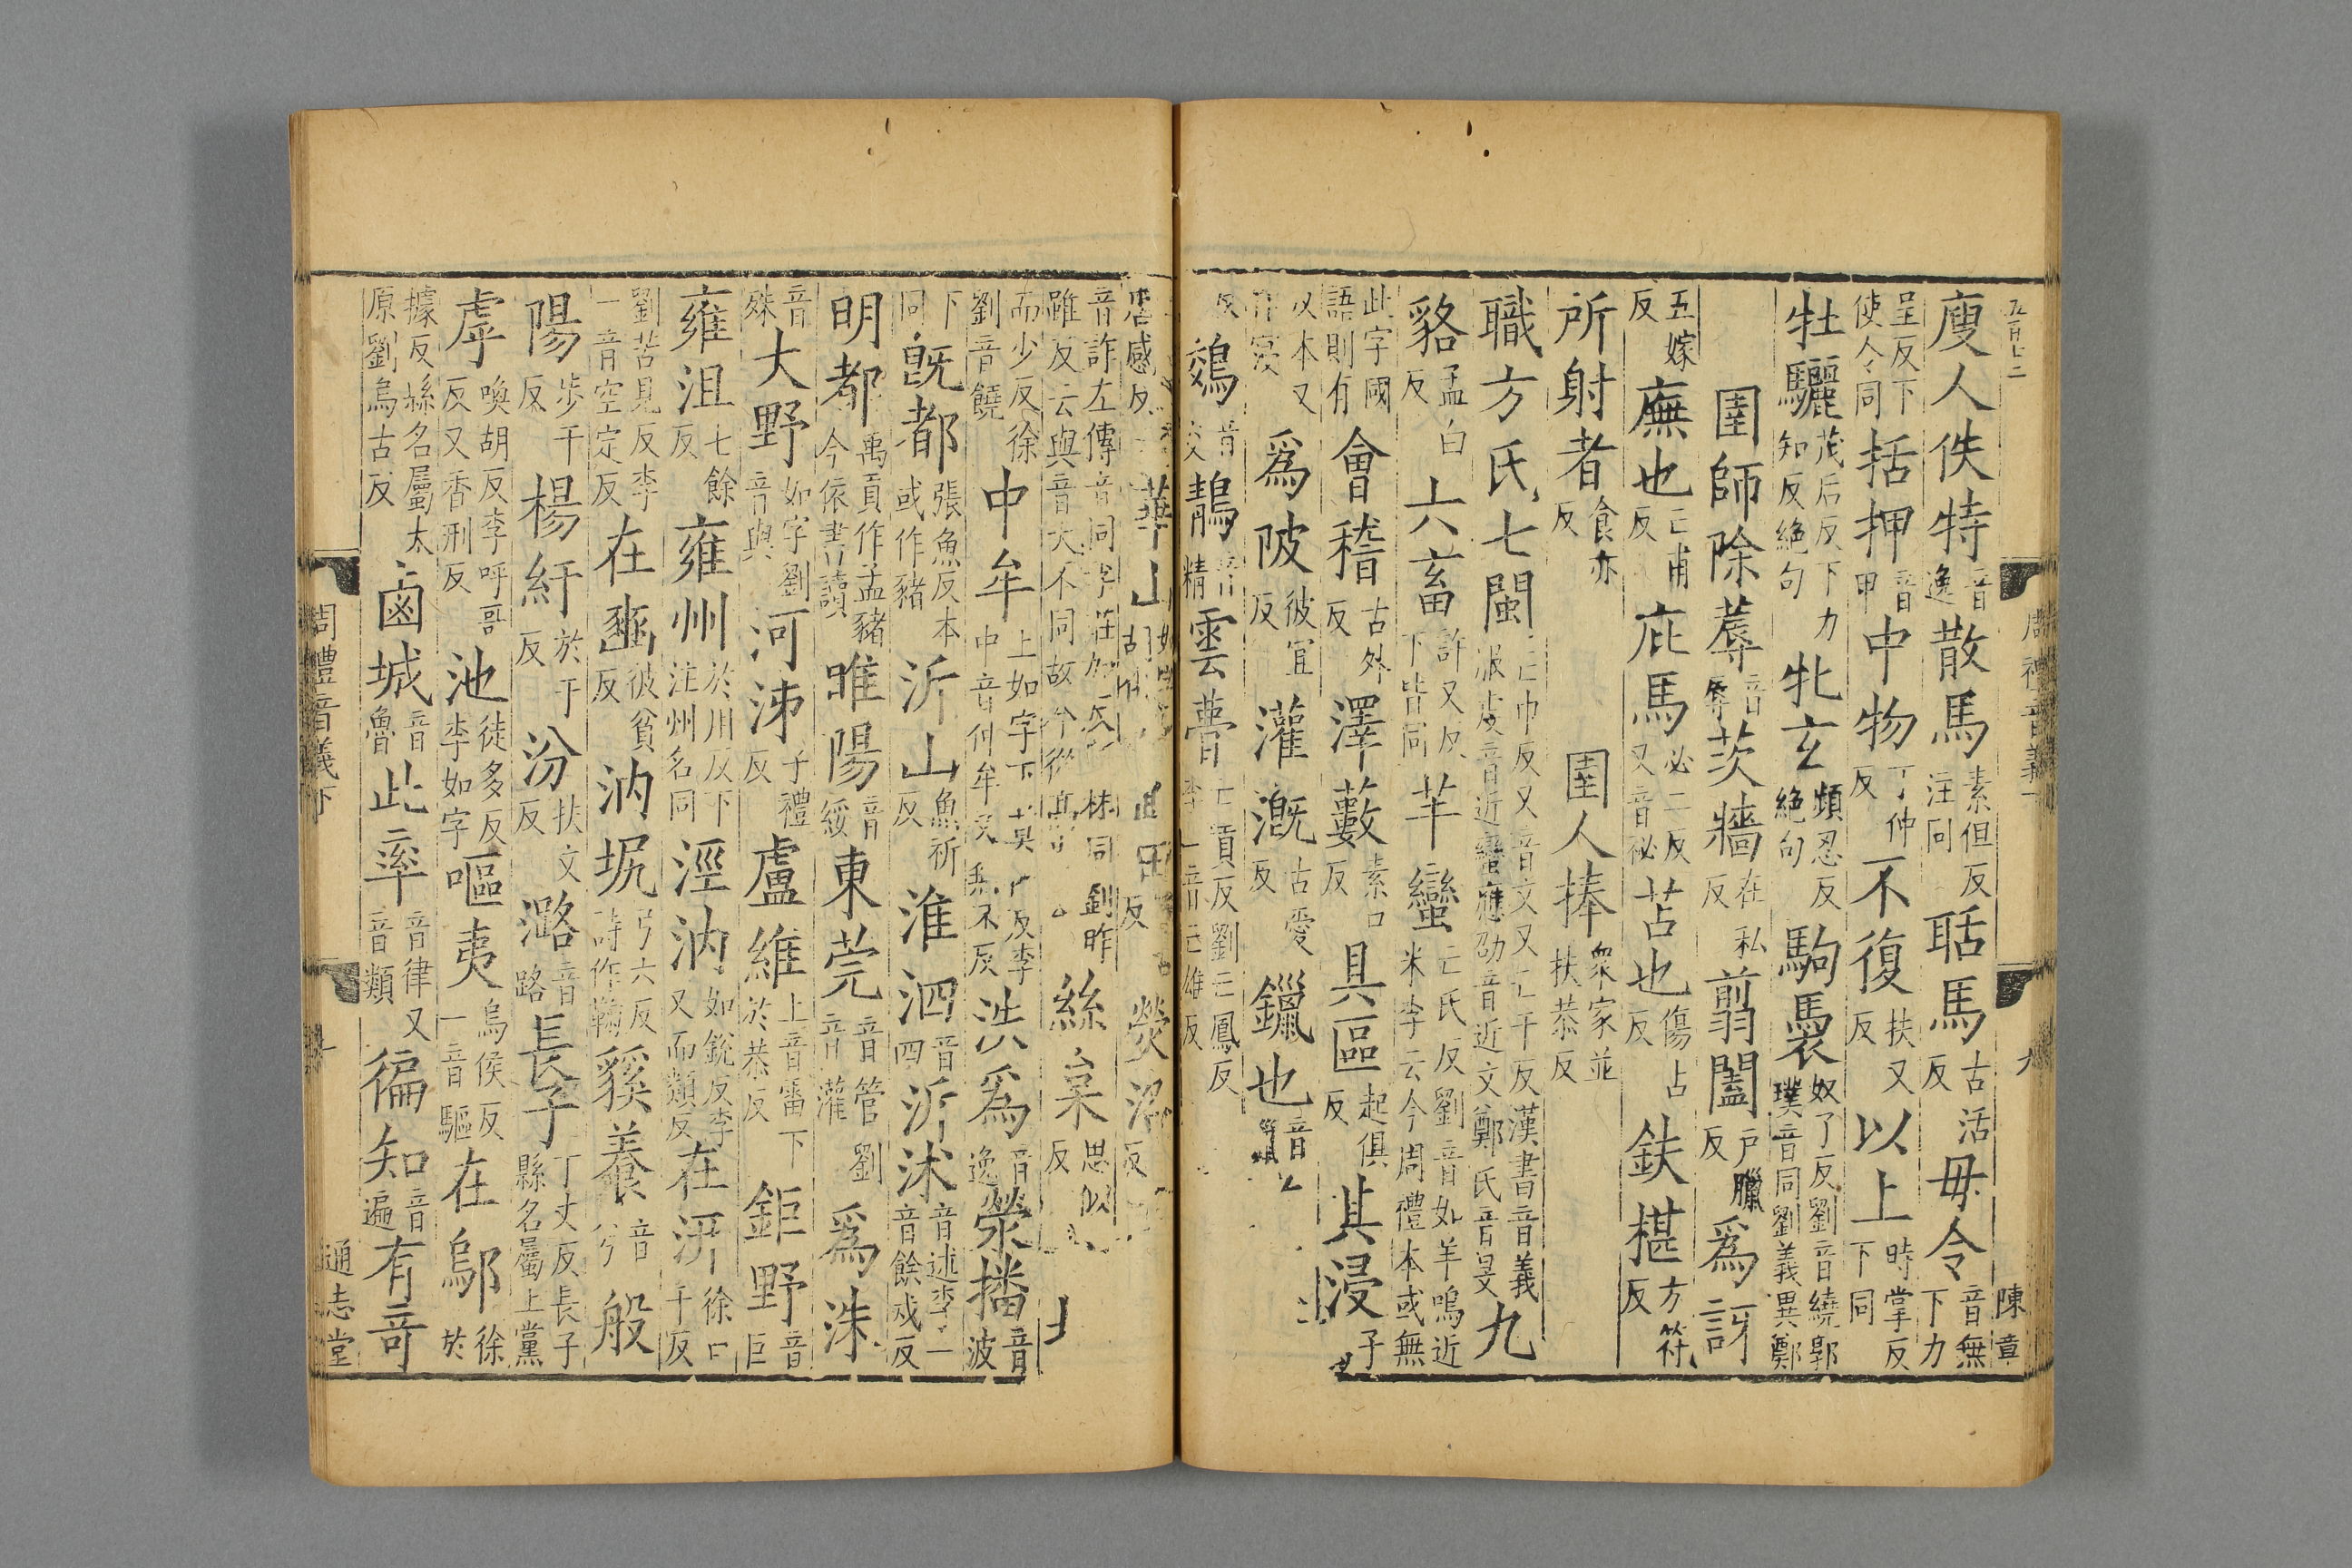 五百七二
周禮音義下
九
陳章
廋人佚特音逸散馬素但反注同聒馬古活反毋令音無下力
呈反下使令同括押音甲中物丁仲反不復扶又反以上時掌反下同
牡驪茂后反下力知反絶句牝玄頻忍反絶句駒褭奴了反劉音繞郭璞音同劉義異鄭
圉師除蓐音辱茨牆在私反翦闔戶臘反爲訝
五嫁反廡也亡甫反庇馬必二反又音祕苫也傷占反鈇椹方符反
所射者食亦反圉人捧衆家並扶恭反
職方氏七閩亡巾反又音文又亡千反漢書音義服虔音近蠻應劭音近文鄭氏音旻九
貉孟白反六畜許又反下皆同羋蠻亡氏反劉音如羊鳴近米李云今周禮本或無
此字國語則有會稽古外反澤藪素口反具區起俱反其浸子
以本又作寖爲陂彼宜反灌漑古愛反鑞也音
反鵁音交鶄音精雲瞢亡貢反劉亡鳳反李一音亡雄反
感反華山熒
音詐左傳音同雖反云與音大不同故今從林同劉昨絲枲思似反
而少反徐劉音饒中牟上如字下莫反李中音仲牟洪爲音逸滎播音波
下同旣都張魚反本或作豬沂山魚祈反淮泗音四沂沭音述李一音餘戍反
明都禹貢作孟豬今依書讀睢陽音綏東莞音管劉音灌爲洙
音殊大野如字劉音與河泲子禮反盧維上音雷下於恭反鉅野音巨
雍沮七餘反雍州於用反下注州名同涇汭如銳反李又而類反在汧徐口千反
劉苦見反李一音空定反在豳彼貧反汭𡱰弓六反詩作鞫貕養音兮般
陽步干反楊紆於于反汾扶文反潞音路長子丁丈反長子縣名屬上黨
虖喚胡反李呼哥反又香刑反池徒多反李如字嘔夷烏侯反一音驅在鄔徐於
據反縣名屬太原劉烏古反鹵城音魯此率音律又音類徧知音遍有奇
周禮音義下
通志堂